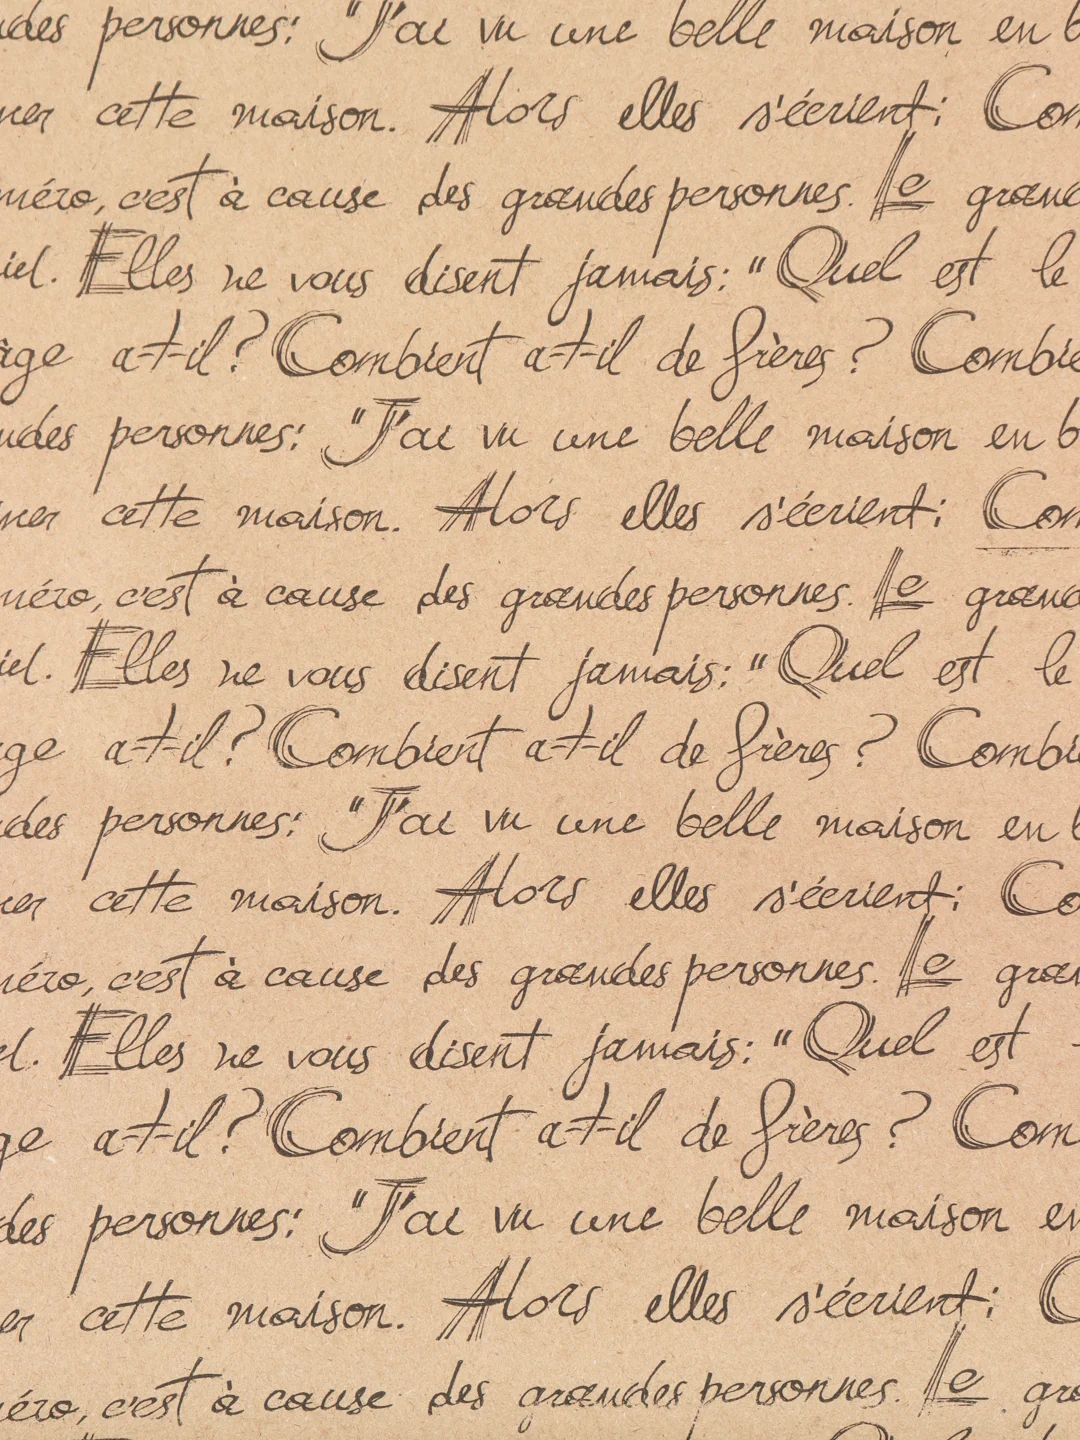 ndes personnes: "J'ai vu une belle maison en b
ner cette maison. Alors elles s'écrient: Com
méro, c'est à cause des grandes personnes. Le grand
iel. Elles ne vous disent jamais: "Quel est le
âge a-t-il? Combient a-t-il de frères? Combie
ndes personnes: "J'ai vu une belle maison en b
ner cette maison. Alors elles s'écrient: Com
néro, c'est à cause des grandes personnes. Le grand
iel. Elles ne vous disent jamais: "Quel est le
ge a-t-il? Combient a-t-il de frères? Combie
des personnes: "J'ai vu une belle maison en b
er cette maison. Alors elles s'écrient: Co
néro, c'est à cause des grandes personnes. Le gran
el. Elles ne vous disent jamais: "Quel est
ge a-t-il? Combient a-t-il de frères? Com
des personnes: "J'ai vu une belle maison en
er cette maison. Alors elles s'écrient: C
éro, c'est à cause des grandes personnes. Le gra